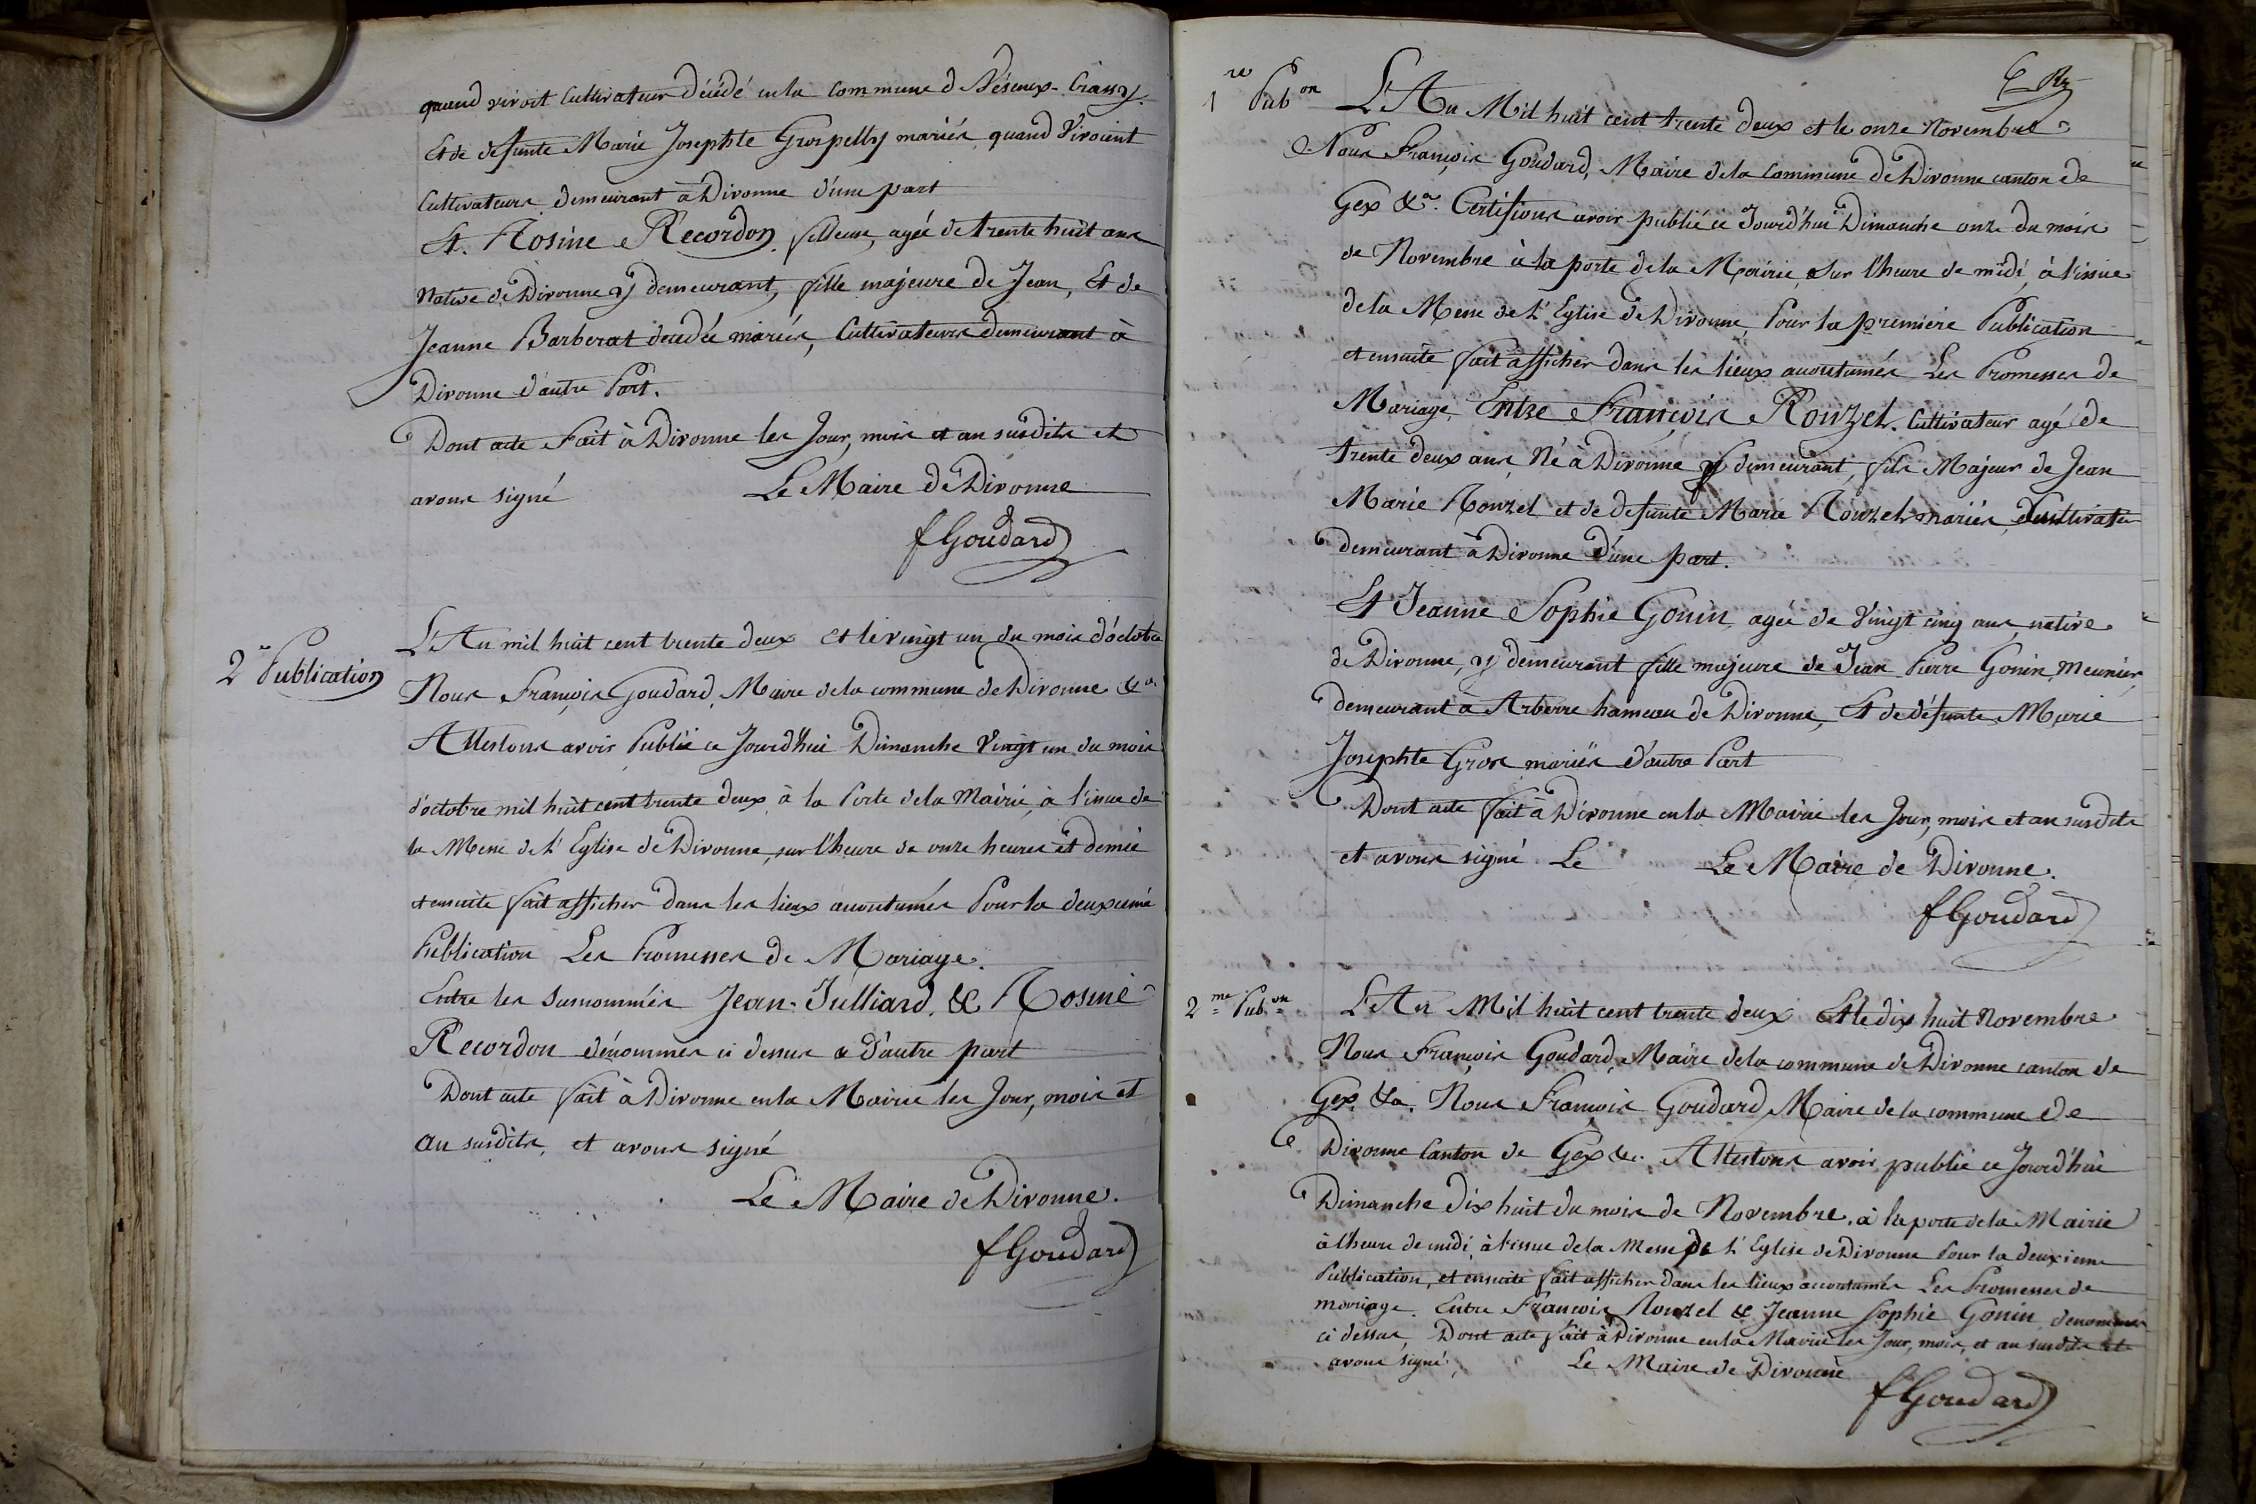 quand vivoit Cultivateur décédé en la commune d Véseux-Crassy.
Et de defunte Marie Josephte Grospelly mariés, quand Vivoient
Cultivateurs demeurant à Divonne d'une part
Et. Rosine Recordon. filleuse, agée de trente huit ans
Native de Divonne y demeurant, fille majeure de Jean, Et de
Jeanne Barberat décédée mariés, Cultivateurs demeurant à
Divonne d'autre Part.
Dont acte Fait à Divonne les Jour, mois et an susdits et
avons signé Le Maire de Divonne
fGoudard
2e Publication
L'An mil huit cent trente deux et le vingt un du mois d'octobre
Nous François Goudard, Maire de la commune de Divonne &a.
Attestons avoir Publié ce Jourd'hui Dimanche Vingt un du mois
d'octobre mil huit cent trente deux à la Porte de la Mairie, à l'issue de
la Messe de l'Eglise de Divonne, sur l'heure de onze heures et demie
et ensuite fait afficher dans les lieux accoutumés Pour la deuxième
Publication Les Promesses de Mariage.
Entre les surnommés Jean Julliard, & Rosine
Recordon dénommés ci dessus & d'autre part
Dont acte fait à Divonne en la Mairie les Jour, mois et
an susdits, et avons signé
Le Maire de Divonne.
fGoudard
1re Pubon
L'An Mil huit cent trente deux et le onze Novembre
Nous François Goudard, Maire de la Commune de Divonne canton de
Gex &a. Certifions avoir publié ce Jourd'hui Dimanche onze du mois
de Novembre à la porte de la Mairie, sur l'heure de midi, à l'issue
de la Messe de l'Eglise de Divonne, Pour la première Publication
et ensuite fait afficher dans les lieux accoutumés Les Promesses de
Mariage, Entre François Rouzet. Cultivateur agé de
trente deux ans, Né à Divonne y demeurant, fils Majeur de Jean
Marie Rouzet et de defunte Marie Rouzet mariés,
demeurant à Divonne d'une part.
Et Jeanne Sophie Gonin agée de Vingt cinq ans, native
de Divonne, y demeurant fille majeure de Jean Pierre Gonin, Meunier,
demeurant à Arberre hameau de Divonne, Et de défunte Marie
Josephte Gros mariés d'autre Part
Dont acte fait à Divonne en la Mairie les Jour, mois et an susdits
et avons signé. Le Le Maire de Divonne.
fGoudard
2me Pubon
L'An Mil huit cent trente deux Et le dix huit Novembre
Nous François Goudard, Maire de la commune de Divonne canton de
Gex, &a. Nous François Goudard Maire de la commune de
Divonne Canton de Gex &c. Attestons avoir publié ce Jourd'hui
Dimanche dix huit du mois de Novembre, à la porte de la Mairie
à l'heure de midi, à l'issue de la Messe de l'Eglise de Divonne Pour la deuxième
Publication, et ensuite fait afficher dans les lieux accoutumés Les Promesses de
mariage. Entre François Rouzet & Jeanne Sophie Gonin, dénommés
ci dessus, Dont acte fait à Divonne en la Mairie les Jour, mois, et an susdits et
avons signé. Le Maire de Divonne
fGoudard